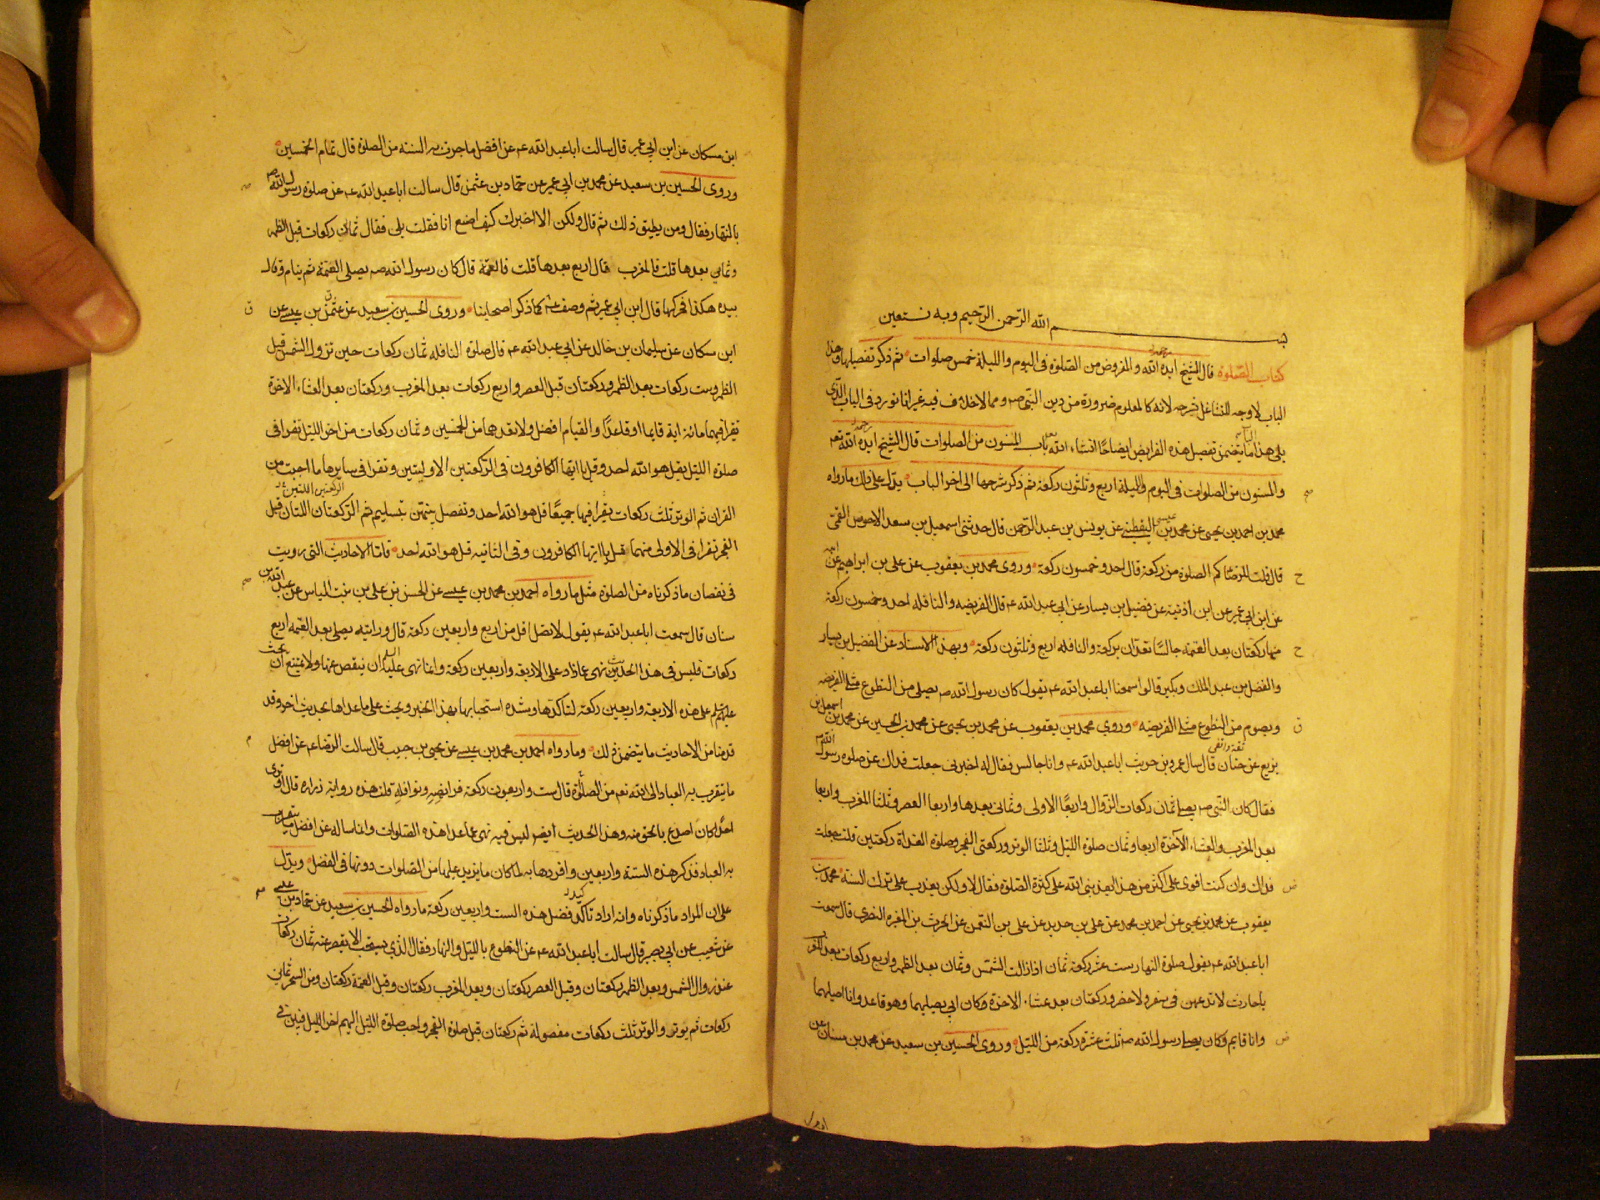 بسم الله الرحمن الرحيم وبه نستعين
كتاب الصلوة قال الشيخ ايده الله والمفروض من الصلوة فى اليوم والليلة خمس صلوات ثم ذكر تفصيلها وهذا
الباب لا وجه للتشاغل بشرحه لانه كالمعلوم ضرورة من دين النبى صم ومما لا خلاف فيه غير انا نورد فى الباب الذى
يلى هذا ما يتضمن تفصيل هذه الفرايض ايضاحا انشاء الله باب المسنون من الصلوات قال الشيخ ايده الله تعم
والمسنون من الصلوات فى اليوم والليلة اربع وثلثون ركعة ثم ذكر شرحها الى اخر الباب يدل على ذلك ما رواه
محمد بن احمد بن يحيى عن محمد بن عيسى اليقطينى عن يونس بن عبد الرحمن قال حدثنى اسمعيل بن سعد الاحوص القمى
قال قلت للرضا كم الصلوة من ركعة قال احد وخمسون ركعة وروى محمد بن يعقوب عن على بن ابراهيم عن ابيه
عن ابن ابى عمير عن ابن اذينة عن فضيل بن يسار عن ابى عبد الله عم قال الفريضه والنافله احد وخمسون ركعة
منها ركعتان بعد العتمه جالسا تعدان بركعة والنافله اربع وثلثون ركعة وبهذا الاسناد عن الفضيل بن يسار
والفضل بن عبد الملك وبكير قالوا سمعنا ابا عبد الله عم يقول كان رسول الله صم يصلى من التطوع مثلى الفريضه
ويصوم من التطوع مثلى الفريضه وروى محمد بن يعقوب عن محمد بن يحيى عن محمد بن الحسين عن محمد بن اسمعيل بن
بزيع عن حنان قال سال عمرو بن حريث ابا عبد الله عم وانا جالس فقال له اخبرنى جعلت فداك عن صلوه رسول الله صم
فقال كان النبى صم يصلى ثمان ركعات الزوال واربعا الاولى وثمانى بعدها واربعا العصر وثلثا المغرب واربعا
بعد المغرب والعشاء الآخرة اربعا وثمان صلوة الليل وثلثا الوتر وركعتى الفجر وصلوة الغداة ركعتين قلت جعلت
فداك وان كنت اقوى على اكثر من هذا يعذبنى الله على كثرة الصلوة فقال لا ولكن يعذب على ترك السنة محمد بن
يعقوب عن محمد بن يحيى عن احمد بن محمد عن على بن حديد عن على بن النعمن عن الحرث بن المغيره النصرى قال سمعت
ابا عبد الله عم يقول صلوة النهار ست عشر ركعة ثمان اذا زالت الشمس وثمان بعد الظهر واربع ركعات بعد المغرب
يا حارث لا تدعهن فى سفر ولا حضر وركعتان بعد عشاء الاخرة وكان ابى يصليهما وهو قاعد وانا اصليهما
وانا قايم وكان يصلى رسول الله صم ثلث عشرة ركعة من الليل وروى الحسين بن سعيد عن محمد بن سنان عن
ابن مسكان عن ابن ابى عمير قال سالت ابا عبد الله عم عن افضل ما جرت به السنه من الصلوة قال تمام الخمسين
وروى الحسين بن سعيد عن محمد بن ابى عمير عن حماد بن عثمن قال سالت ابا عبد الله عم عن صلوة رسول الله صم
بالنهار فقال ومن يطيق ذلك ثم قال ولكن الا اخبرك كيف اصنع انا فقلت بلى فقال ثمان ركعات قبل الظهر
وثمانى بعدها قلت فالمغرب قال اربع بعدها قلت فالعتمة قال كان رسول الله صم يصلى العتمة ثم ينام وقال
بيده هكذا فحركها قال ابن ابى عمير ثم وصف عم كما ذكر اصحابنا وروى الحسين بن سعيد عن عثمن بن عيسى عن
ابن مسكان عن سليمان بن خالد عن ابى عبد الله عم قال صلوة النافله ثمان ركعات حين تزول الشمس قبل
الظهر وست ركعات بعد الظهر وركعتان قبل العصر واربع ركعات بعد المغرب وركعتان بعد العشاء الاخرة
تقرا فيهما مائة اية قايما او قاعدا والقيام افضل ولا تعدهما من الخمسين وثمان ركعات من اخر الليل تقرا فى
صلوة الليل بقل هو الله احد وقل يا ايها الكافرون فى الركعتين الاوليتين وتقرا فى سايرها ما احببت من
القران ثم الوتر ثلث ركعات يقرا فيها جميعا قل هو الله احد وتفصل بينهن بتسليم ثم الركعتان اللتان قبل
الفجر تقرا فى الاولى منهما قل يا ايها الكافرون وفى الثانيه قل هو الله احد فاما الاحاديث التى رويت
فى نقصان ما ذكرناه من الصلوة مثل ما رواه احمد بن محمد بن عيسى عن الحسن بن على بن بنت الياس عن عبد الله بن
سنان قال سمعت ابا عبد الله عم يقول لا تصل اقل من اربع واربعين ركعة قال ورايته يصلى بعد العتمه اربع
ركعات فليس فى هذا الحديث نهى عما زاد على الاربعة واربعين ركعة وانما نهى عليه السلم ان ينقص عنها ولا يمتنع ان يحث
عليهم على هذه الاربعة واربعين ركعة لتاكدها وشده استحبابها بهذا الخبر ويحث على ما عداها بحديث اخر وقد
قدمنا من الاحاديث ما يتضمن ذلك وما رواه احمد بن محمد بن عيسى عن يحيى بن حبيب قال سالت الرضا عم عن افضل
ما يتقرب به العباد الى الله تعم من الصلوة قال ست واربعون ركعة فرايضه ونوافله قلت هذه رواية زراره قال او ترى
احدا كان اصدع بالحق منه وهذا الحديث ايضا ليس فيه نهى عما عدا هذه الصلوات وانما ساله عن افضل ما يتقرب
به العباد فذكر هذه الستة واربعين وافردها به لما كان ما يزيد عليها من الصلوات دونها فى الفضل ويدل
على ان المراد ما ذكرناه وانه اراد تاكد فضل هذه الست واربعين ركعة ما رواه الحسين بن سعيد عن حماد بن عيسى
عن شعيب عن ابى بصير قال سالت ابا عبد الله عم عن التطوع بالليل والنهار فقال الذى يستحب الا يقصر عنه ثمان ركعات
عند زوال الشمس وبعد الظهر ركعتان وقبل العصر ركعتان وبعد المغرب ركعتان وقبل العتمة ركعتان ومن السحر ثمانى
ركعات ثم يوتر والوتر ثلث ركعات مفصولة ثم ركعتان قبل صلوة الفجر واحب صلوة الليل اليهم اخر الليل